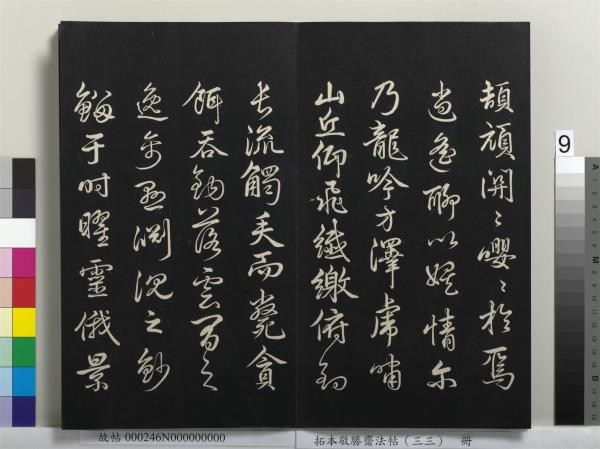 頡頏関〻嚶〻於焉
逍遙聊以娛情尔
乃龍吟方澤虎嘯
山丘仰飛纖繳俯釣
長流觸矢而斃貪
餌吞鉤落雲間之
逸禽懸淵沉之魦
鰡于時曜靈俄景
9
故帖 000246N000000000
拓本敬勝齋法帖（三三） 冊